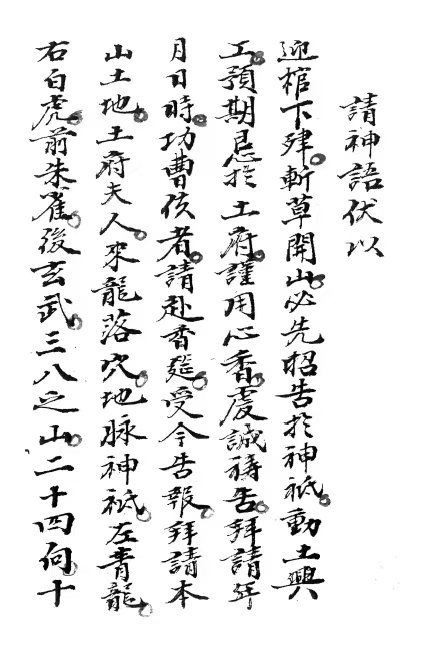 請神語伏以
迎棺下肂。斬草開山。必先昭告於神祇。動土興
工。預期忌於土府。謹用心香。虔誠禱告。拜請年
月日時。功曹侯者。請赴香筵。受今告報。拜請本
山土地。土府夫人。來龍落穴。地脉神祇。左青龍。
右白虎。前朱雀。後玄武。三八之山。二十四向。十